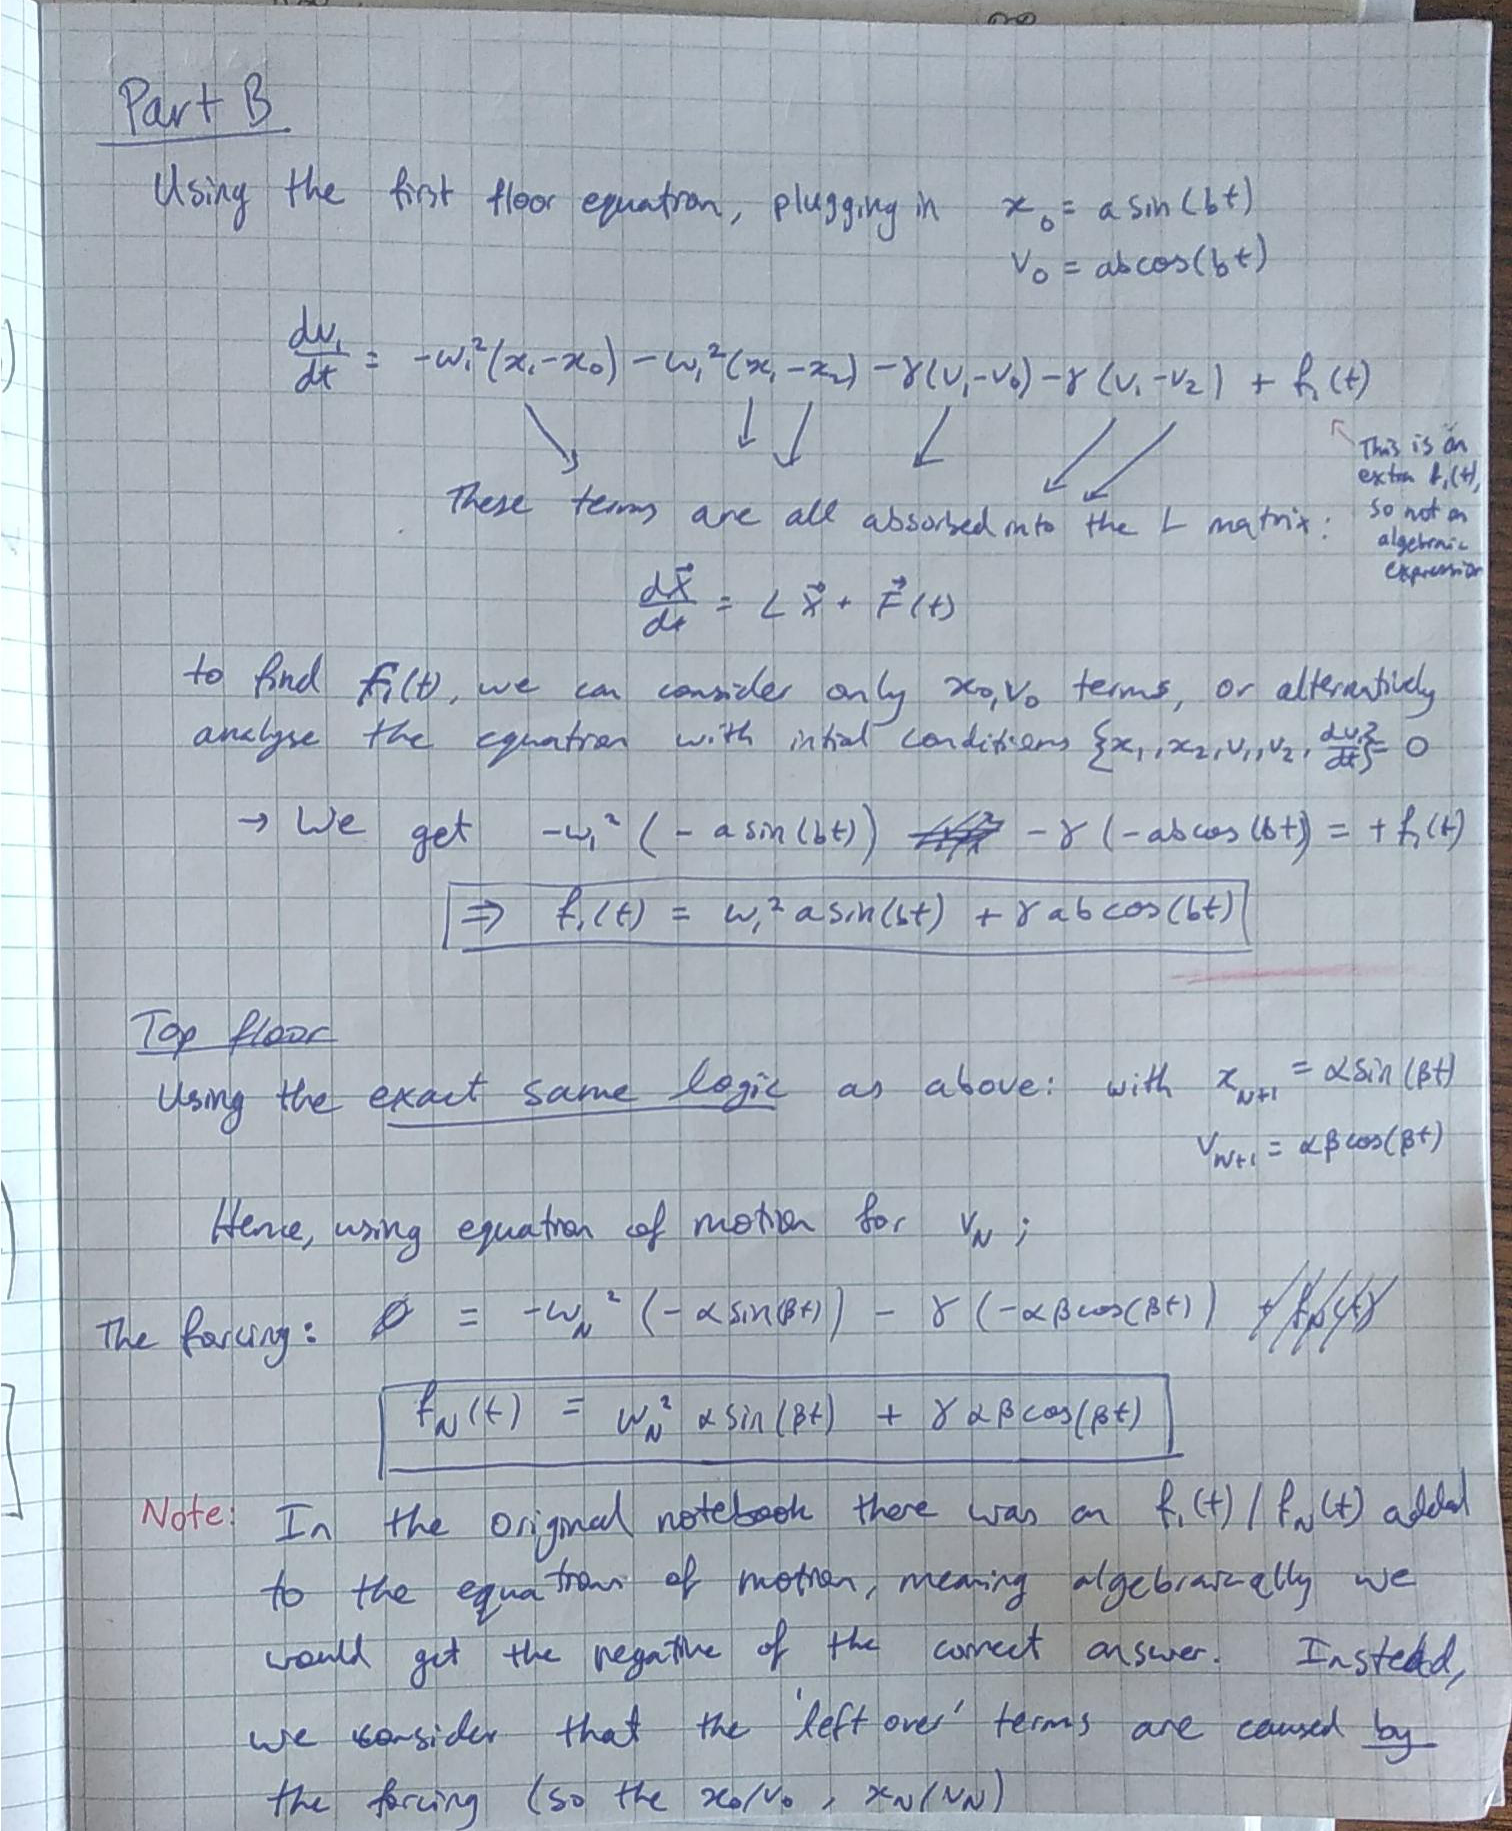 Part B
Using the first floor equation, plugging in x₀ = a sin(bt)
v₀ = ab cos(bt)
dv₁/dt = -ω₁²(x₁-x₀) - ω₁²(x₁-x₂) - γ(v₁-v₀) - γ(v₁-v₂) + f₁(t)
This is an
extra f₁(t),
so not an
algebraic
expression
These terms are all absorbed into the L matrix:
dX⃗/dt = L X⃗ + F⃗(t)
to find f₁(t), we can consider only x₀,v₀ terms, or alternatively
analyse the equation with intial conditions {x₁,x₂,v₁,v₂,dv₁/dt}=0
→ We get -ω₁²(-a sin(bt)) - γ(-ab cos(bt)) = +f₁(t)
⇒ f₁(t) = ω₁² a sin(bt) + γ ab cos(bt)
Top floor
Using the exact same logic as above: with x_N+1 = α sin(βt)
v_N+1 = αβ cos(βt)
Hence, using equation of motion for v_N ;
The forcing: = -ω_N²(-α sin(βt)) - γ(-αβ cos(βt))
f_N(t) = ω_N² α sin(βt) + γ αβ cos(βt)
Note: In the original notebook there was an f₁(t) / f_N(t) added
to the equation of motion, meaning algebraically we
would get the negative of the correct answer. Instead,
we consider that the 'left over' terms are caused by
the forcing (so the x₀/v₀ , x_N/v_N)